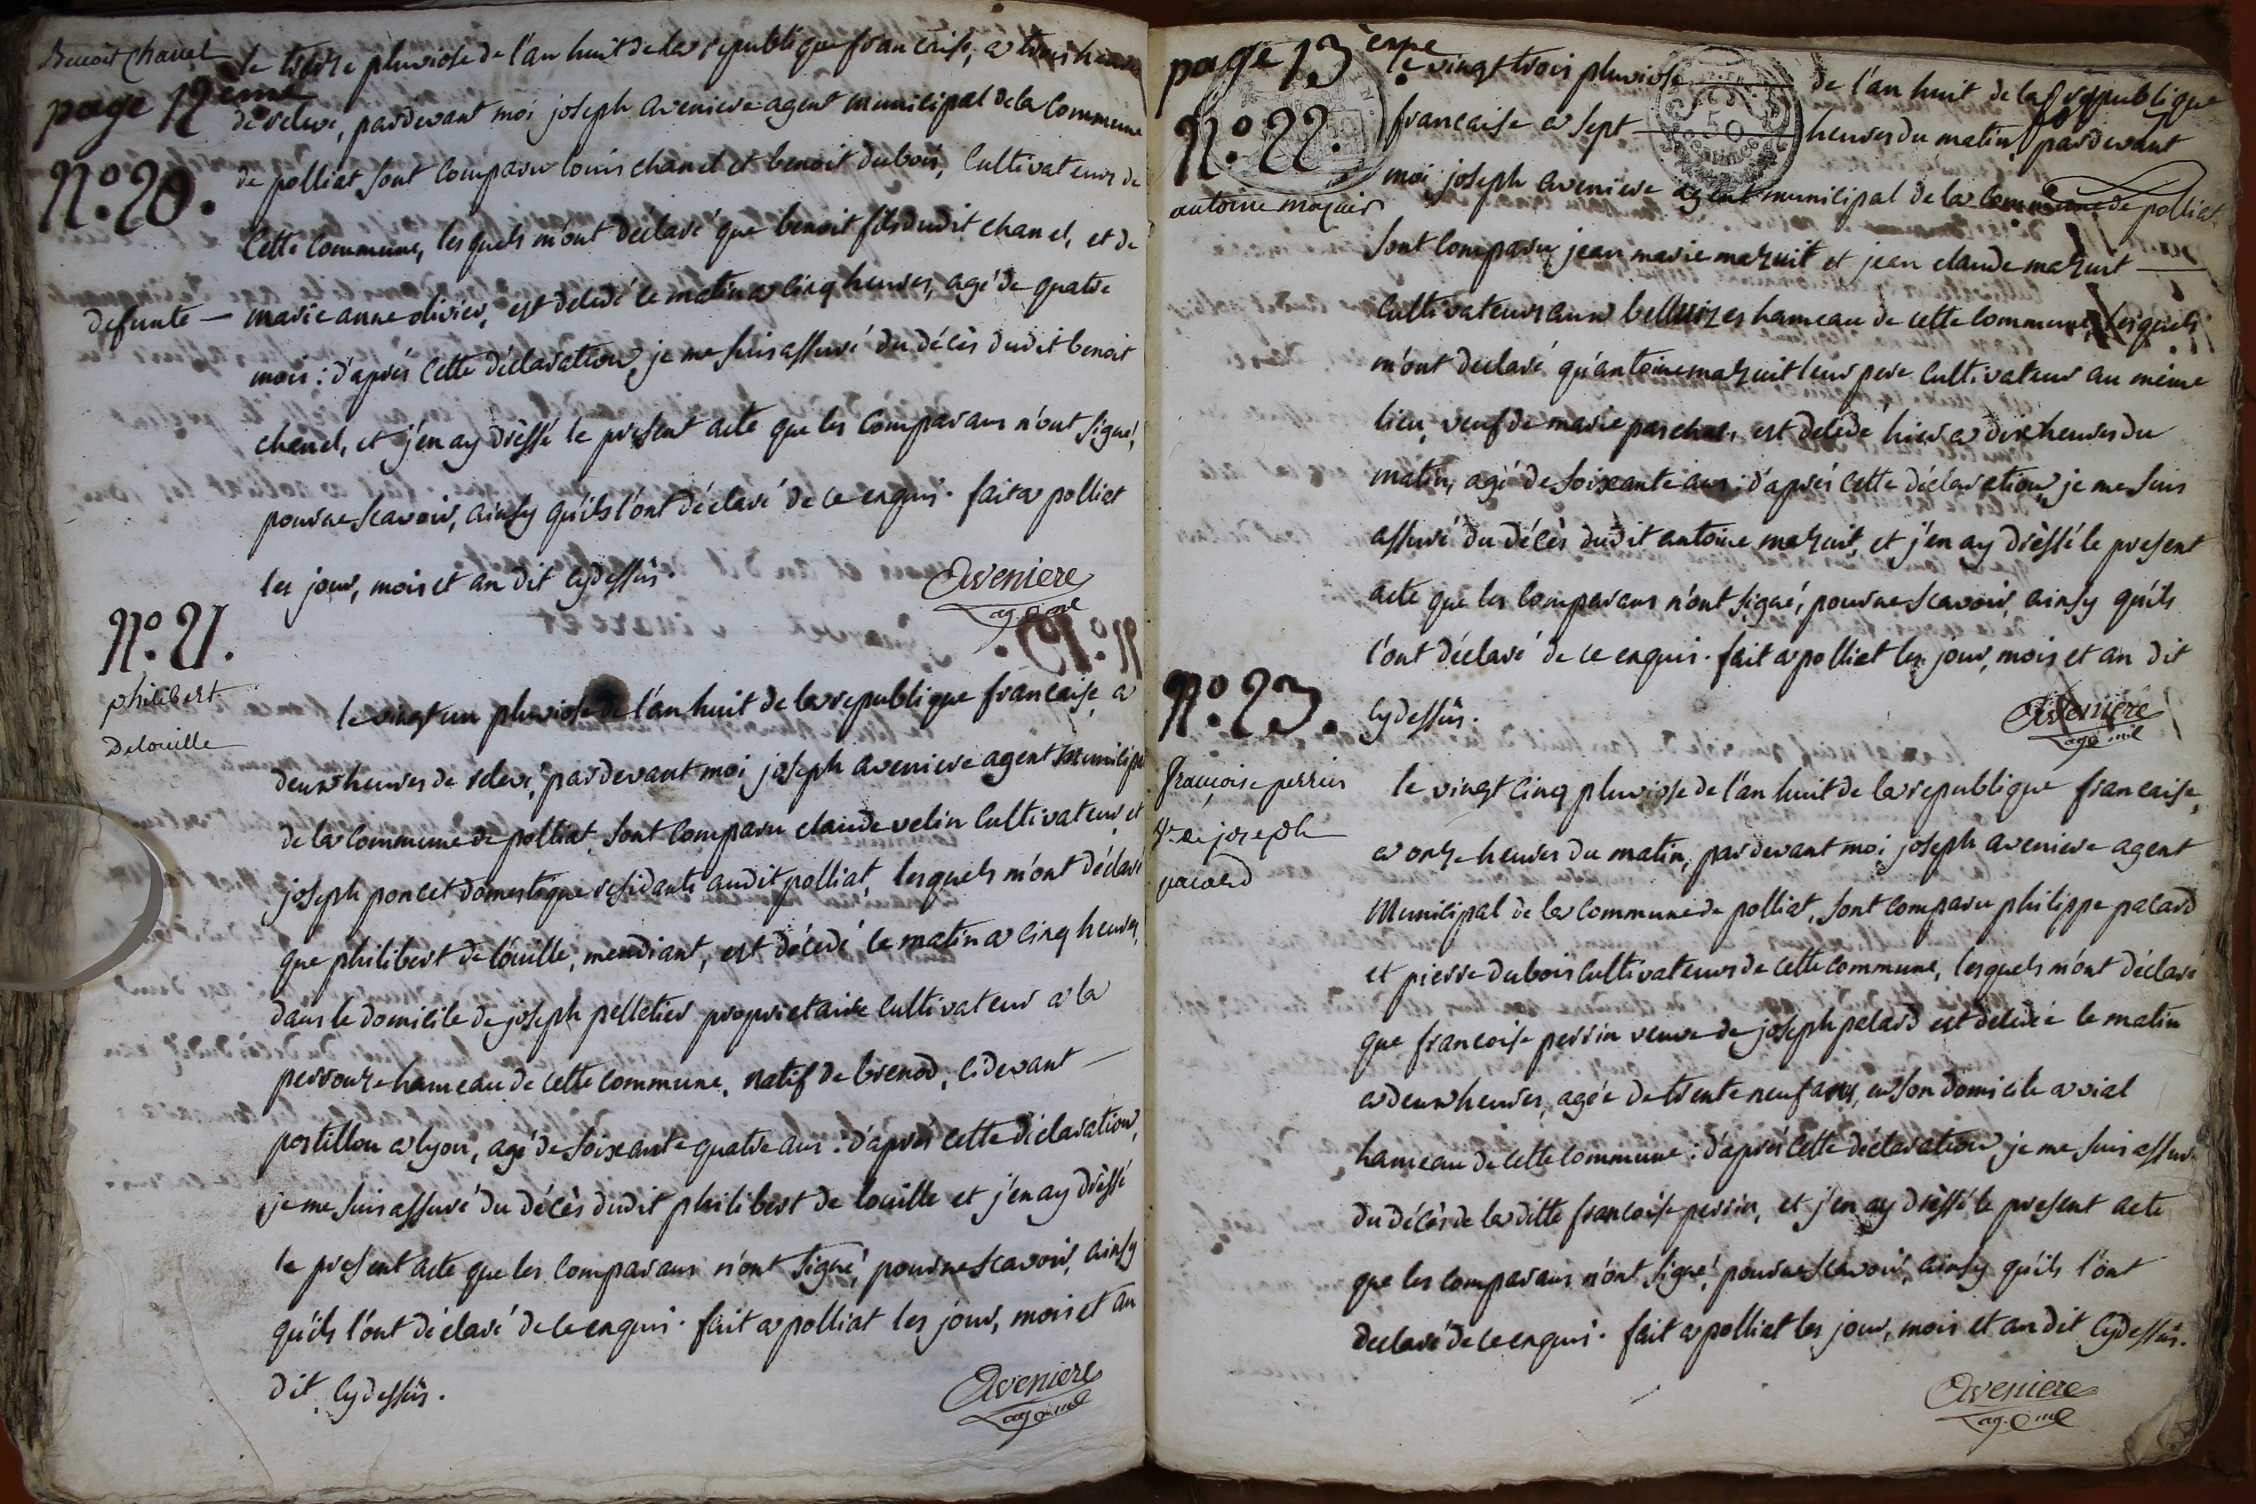 Benoit Chanel
page 12ème
N.º 20.
le treize pluviose de l'an huit de la republique francaise, a trois heures
de relevé, pardevant moi joseph aveniere agent municipal de la Commune
de polliat sont comparu louis chanel et benoit dubois, Cultivateurs de
Cette Commune, lesquels m'ont declaré que benoit fils dudit chanel, et de
defunte — marie anne olivier, est decedé ce matin a cinq heures, agé de quatre
mois : d'aprés Cette déclaration, je me suis assuré du décès dudit benoit
chanel, et j'en ay drèssé le present acte que les Comparans n'ont signé,
pour ne scavoir, ainsy qu'ils l'ont déclaré de ce enquis. fait a polliat
les jour, mois et an dit cydessûs.
Aveniere
ag. mal
N.º 21.
philibert
Delouille
le vingt un pluviose de l'an huit de la republique francaise, a
deux heures de relevé, pardevant moi joseph aveniere agent municipal
de la Commune de polliat, sont comparu claude velin Cultivateur, et
joseph poncet domestique residants audit polliat, lesquels m'ont déclaré
que philibert de louille, mendiant, est décedé ce matin a cinq heures,
dans le domicile de joseph pelletier proprietaire cultivateur a la
perrouze hameau de cette commune, natif de brenod, cidevant —
postillon a lyon, agé de soixante quatre ans : d'aprés cette déclaration,
je me suis assuré du décès dudit philibert de louille et j'en ay drèssé
le present acte que les Comparans n'ont signé, pour ne scavoir, ainsy
qu'ils l'ont déclaré de ce enquis. fait a polliat les jour, mois et an
dit cydessûs.
Aveniere
ag. mal
page 13eme
N.º 22.
antoine mazuir
le vingt trois pluviose — de l'an huit de la republique
francaise a sept — heures du matin, pardevant
50
moi joseph aveniere agent municipal de la commune de polliat,
sont comparu jean marie mazuit et jean claude mazuit —
Cultivateurs aux belluizes hameau de cette commune, lesquels
m'ont declaré qu'antoine mazuit leur pere cultivateur au même
lieu, veuf de marie paschal, est decedé hier a dix heures du
matin, agé de soixante ans : d'aprés cette déclaration, je me suis
assuré du décès dudit antoine mazuit, et j'en ay drèssé le present
acte que les comparans n'ont signé, pour ne scavoir, ainsy qu'ils
l'ont déclaré de ce enquis. fait a polliat les jour, mois et an dit
cydessûs.
Aveniere
ag. mal
N.º 23.
françoise perrin
Ve. de joseph
pacard
le vingt cinq pluviose de l'an huit de la republique francaise,
a onze heures du matin, pardevant moi joseph aveniere agent
Municipal de la commune de polliat, sont comparu philippe pacard
et pierre dubois cultivateurs de cette commune, lesquels m'ont déclaré
que francoise perrin veuve de joseph pacard est decedée ce matin
a deux heures, agée de trente neuf ans, en son domicile a vial
hameau de cette commune : d'aprés cette déclaration, je me suis assuré
du décès de la ditte francoise perrin, et j'en ay drèssé le present acte
que les comparans n'ont signé, pour ne scavoir, ainsy qu'ils l'ont
declaré de ce enquis. fait a polliat les jour, mois et an dit cydessûs.
Aveniere
ag. mal